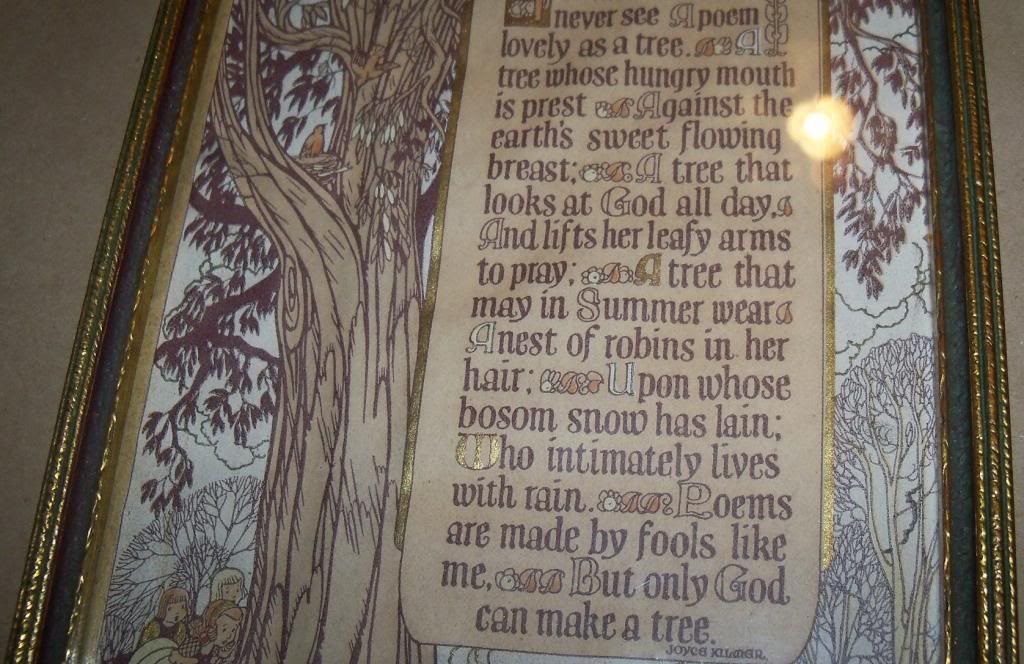 never see A poem
lovely as a tree. A
tree whose hungry mouth
is prest Against the
earth's sweet flowing
breast; A tree that
looks at God all day,
And lifts her leafy arms
to pray; A tree that
may in Summer wear
A nest of robins in her
hair; Upon whose
bosom snow has lain;
Who intimately lives
with rain. Poems
are made by fools like
me, But only God
can make a tree.
JOYCE KILMER.